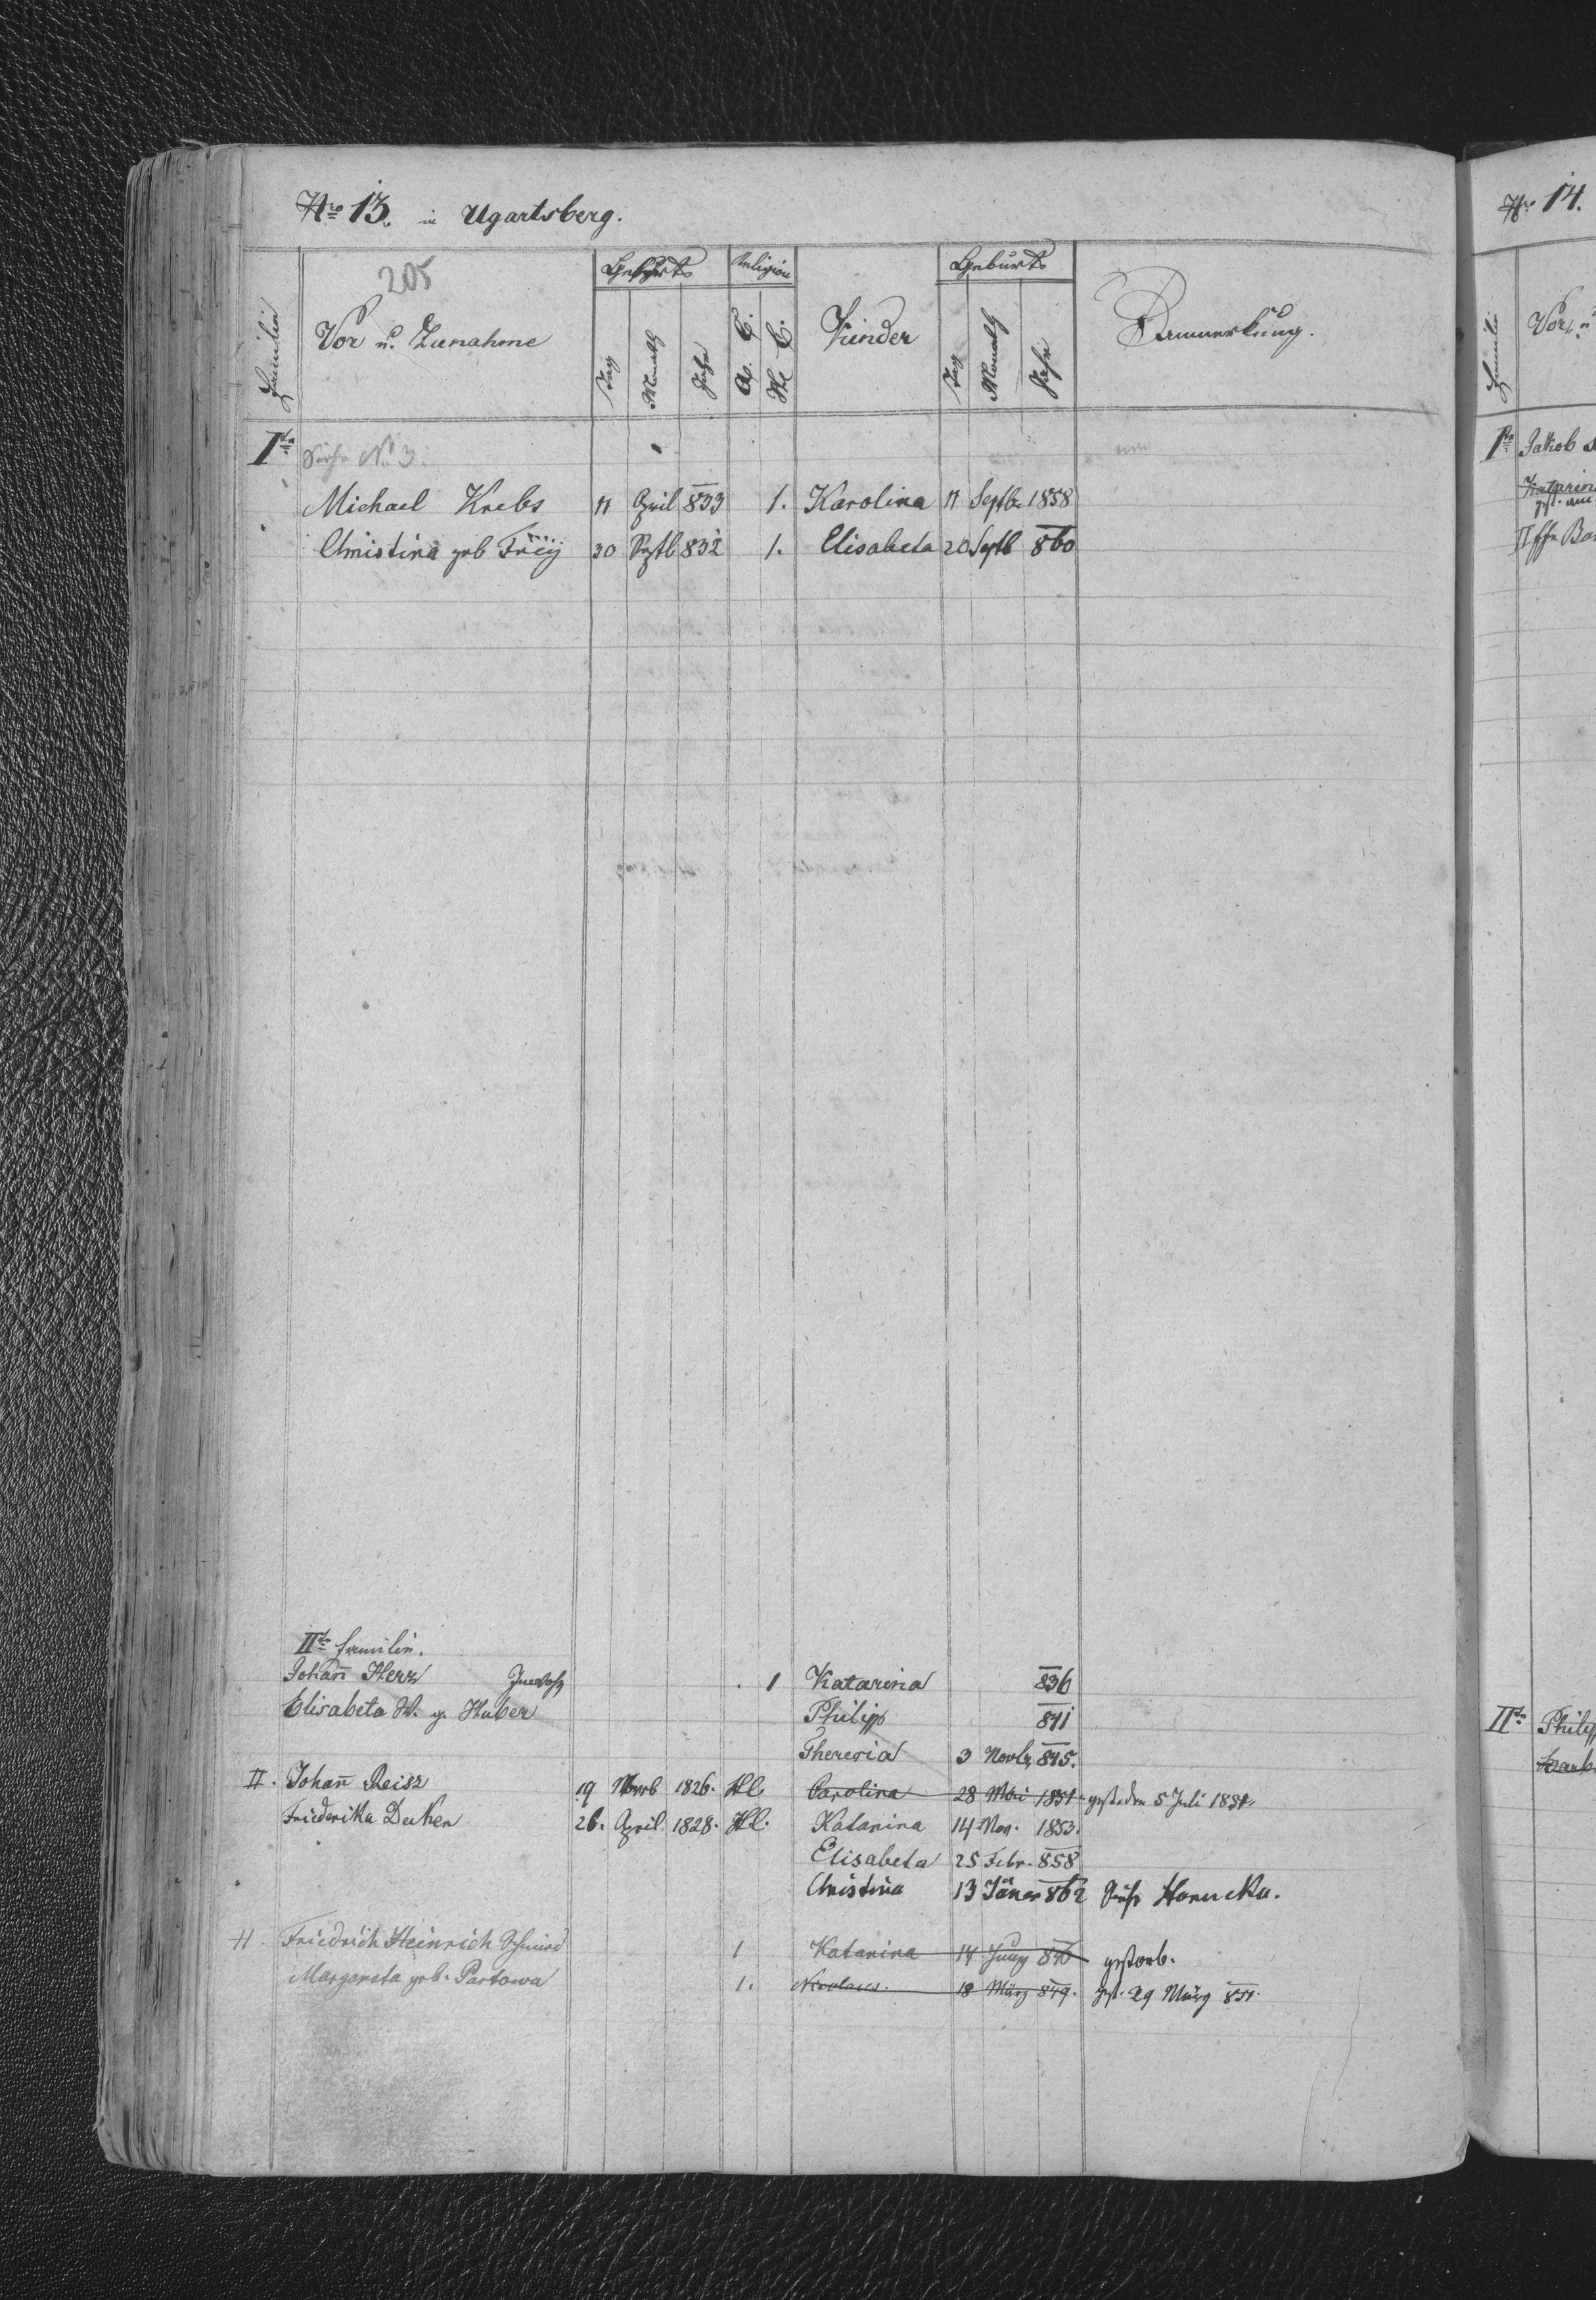 Nro 13. in Ugartsberg.
205
Familie Vor u. Zunahme Geburts Tag Monath Jahr Religion A. C. H. C. Kinder Geburts Tag Monath Jahr Anmerkung.
Ite Siehe No 3.
Michael Krebs 11 April 833 1. Karolina 11 Septb. 1858
Christina geb Freÿ 30 Septb 832 1. Elisabeta 20 Septb 860
IIte Familie.
Johan̄ Herz 1 Katarina 836
Elisabeta W. g. Huber Philipp 841
Theresia 3 Novb. 845.
II. Johan̄ Reisz 19 Novb 1826. Hl. Carolina 28 Mai 1851 gest. den 5 Juli 1851.
Friederika Decker 26. April 1828. Hl. Katarina 14 Nov. 1853.
Elisabeta 25 Febr. 858
Christina 13 Jäner 862 Siehe Hanucka.
II. Friedrich Heinrich Schmied 1 Katarina 14 846 gestorb.
Margareta geb. Partowa 1. Nicolaus. 18 März 849. gest. 29 März 851.
Nro 14.
Familie Vor u.
Ite Jakob
Katarina
gest. am
IIte Philipp